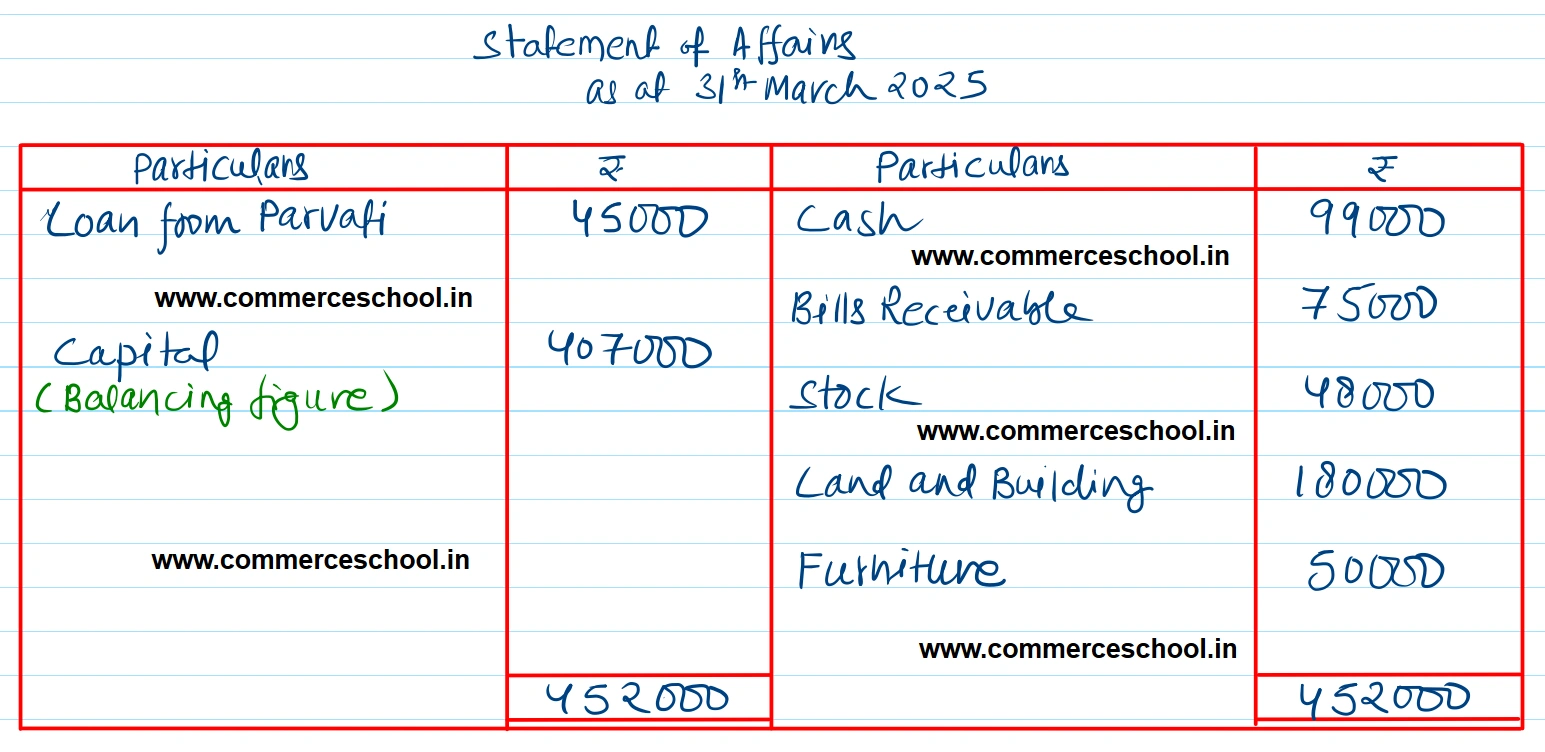 Statement of Affairs
as at 31st March 2025
Particulars ₹ Particulars ₹
Loan from Parvati 45000 Cash 99000
www.commerceschool.in
www.commerceschool.in
Bills Receivable 75000
Capital 407000
(Balancing figure) Stock 48000
www.commerceschool.in
Land and Building 180000
www.commerceschool.in
Furniture 50000
www.commerceschool.in
452000 452000